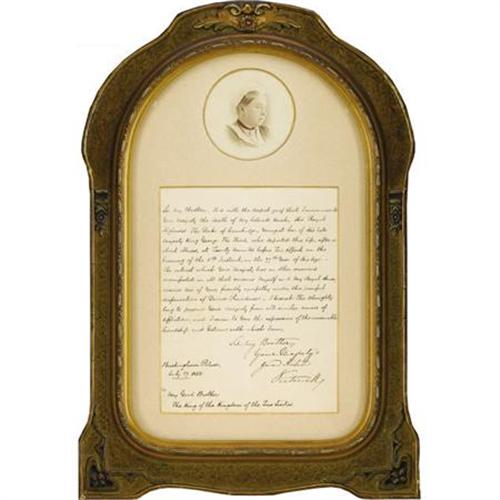 Sir My Brother, It is with the deepest grief that I announce to
Your Majesty the death of My beloved Uncle, His Royal
Highness The Duke of Cambridge, Youngest Son of His late
Majesty King George The Third, who departed this life, after a
short illness, at Twenty Minutes before Ten o'Clock in the
Evening of the 8th Instant, in the 77th Year of His Age.
The interest which Your Majesty has on other occasions
manifested in all that concerns Myself and My Royal House,
assures Me of Your friendly sympathy under this painful
dispensation of Divine Providence. I beseech the Almighty
long to preserve Your Majesty from all similar causes of
affliction, and I renew to You the expression of the invariable
friendship and Esteem with which I am
Sir My Brother,
Your Majesty's
Good Sister
Victoria R
Buckingham Palace,
July 1850
My Good Brother
The King of the Kingdom of the Two Sicilies